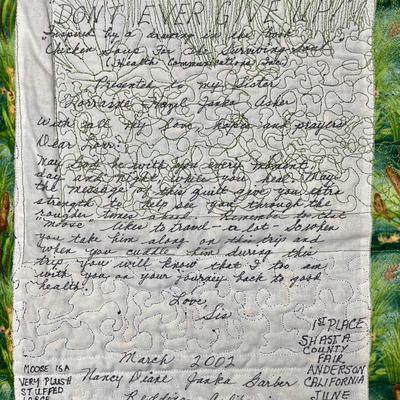 DON'T EVER GIVE UP!
Inspired by a drawing in the book
Chicken Soup For the Surviving Soul
(Health Communications Inc.)
Presented to my Sister
Lorraine Janka Asher
With all my love, hopes and prayers
Dear Lorr:
May God be with you every moment
day and night while you heal. May
the message of this quilt give you extra
strength to help see you through the
rougher times ahead. Remember to that
"moose" likes to travel - a lot - so when
you take him along on this trip and
when you cuddle him during this
trip you will know that I too am
with you on your journey back to good
health.
Love,
Sis
March 2002
Nancy Diane Janka Garber
Redding, California
MOOSE IS A
VERY PLUSH
STUFFED
1ST PLACE
SHASTA
COUNTY
FAIR
ANDERSON
CALIFORNIA
JUNE